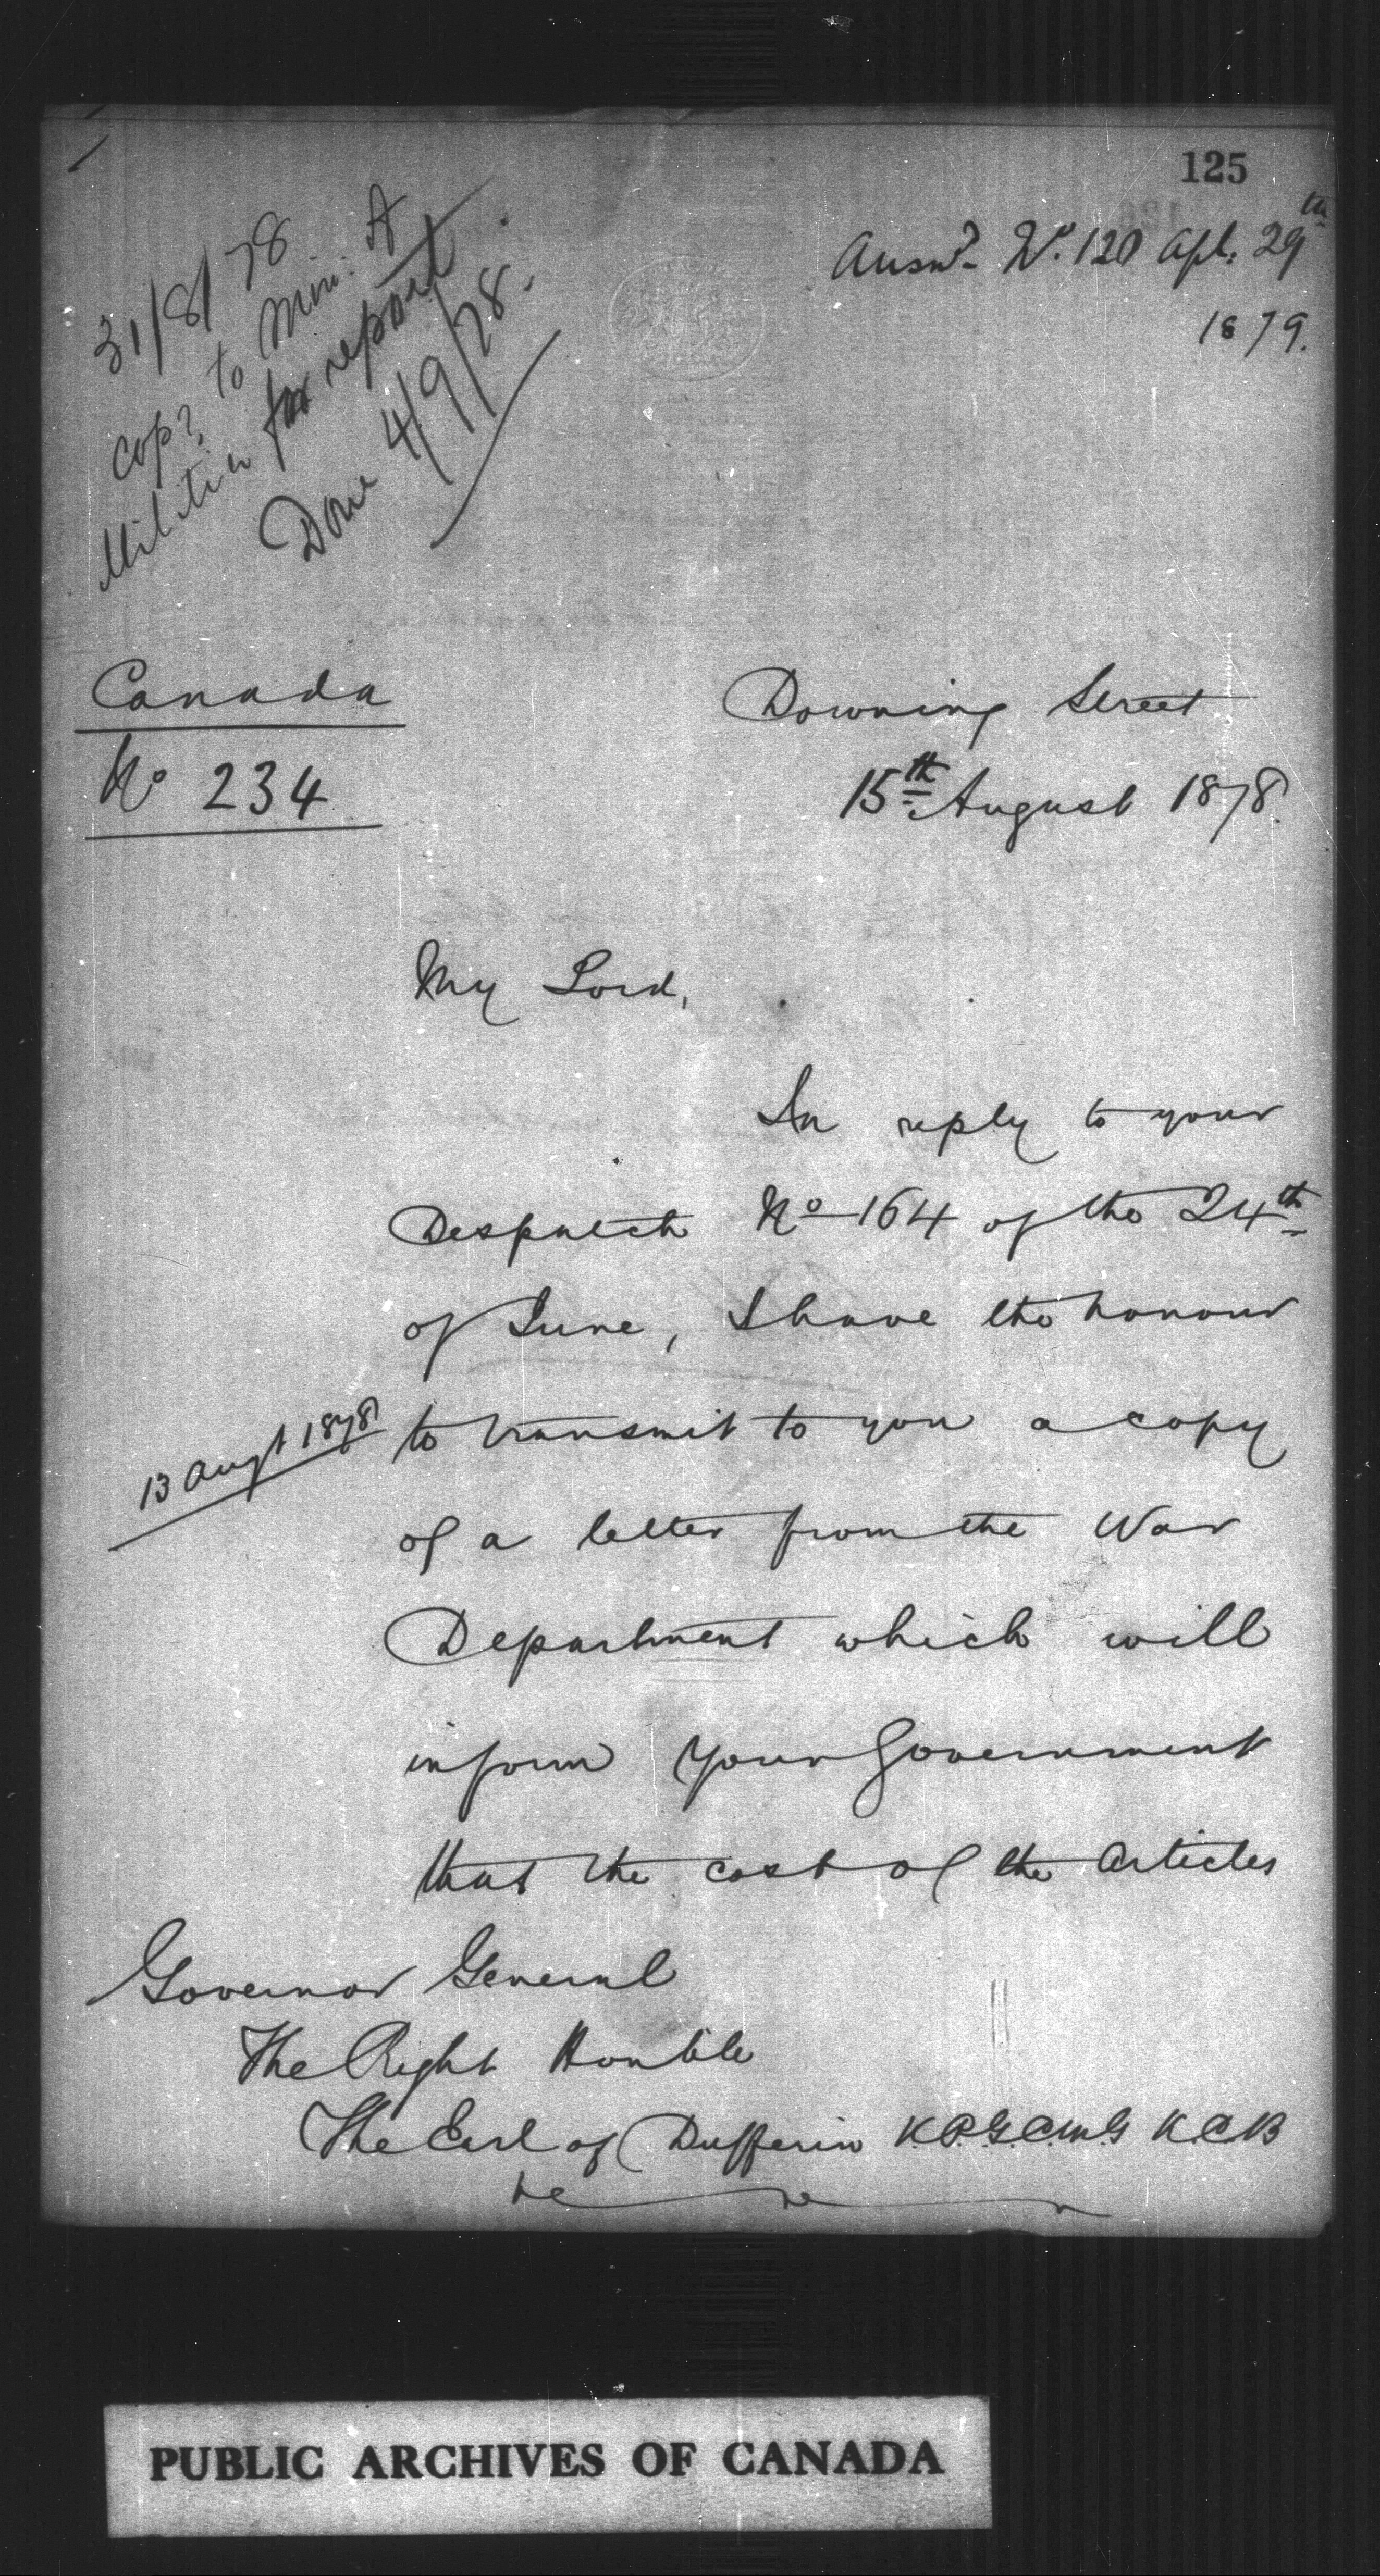 125
Answd. No. 120 Apl. 29th
1879.
31/8/78
Cop? to Min. of
Militia for report
Done 4/9/78.
Canada
No 234
Downing Street
15th August 1878.
My Lord,
In reply to your
Despatch No 164 of the 24th
of June, I have the honour
13 Augt 1878
to transmit to you a copy
of a letter from the War
Department which will
inform Your Government
that the cost of the Articles
Governor General
The Right Honble
The Earl of Dufferin K.P. G.C.M.G K.C.B
&c &c
PUBLIC ARCHIVES OF CANADA